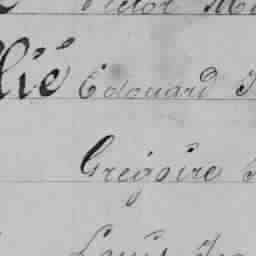 Victor
lié Edouard
Grégoire
Louis